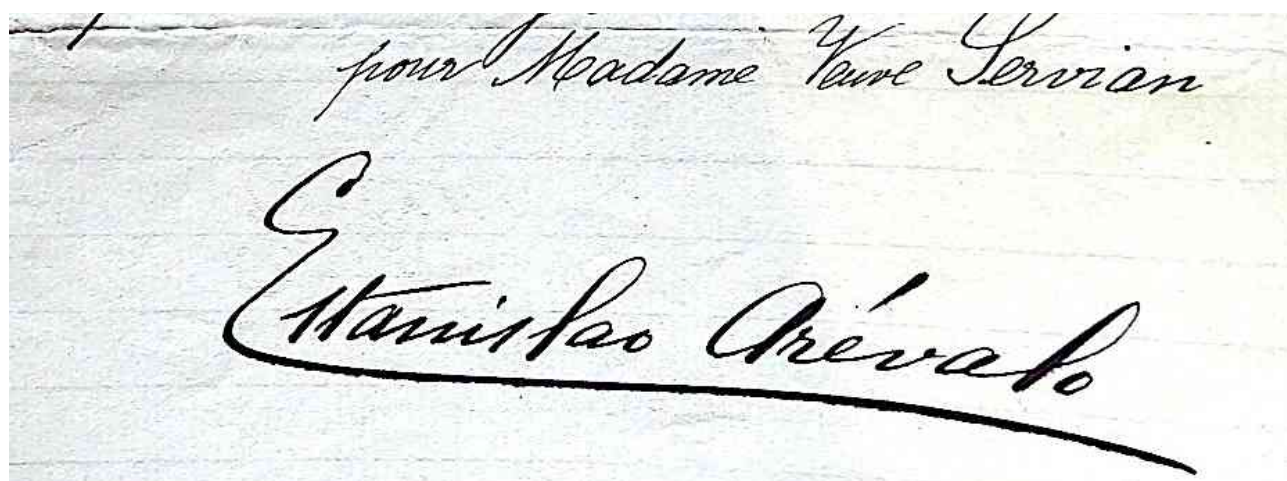 pour Madame Veuve Servian
Estanislao Arévalo